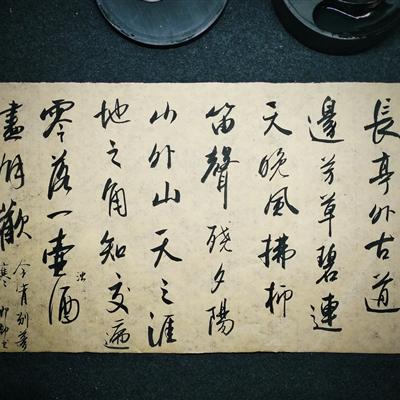 長亭外古道
邊芳草碧連
天晚風拂柳
笛聲殘夕陽
山外山天之涯
地之角知交遍
零落一壺濁酒
盡餘歡
今宵別夢
寒